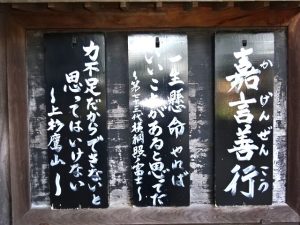 嘉言善行
かげんぜんこう
一生懸命やれば
いいことがあると思ってた
〜第七十三代横綱照ノ富士〜
力不足だからできないと
思ってはいけない
〜上杉鷹山〜